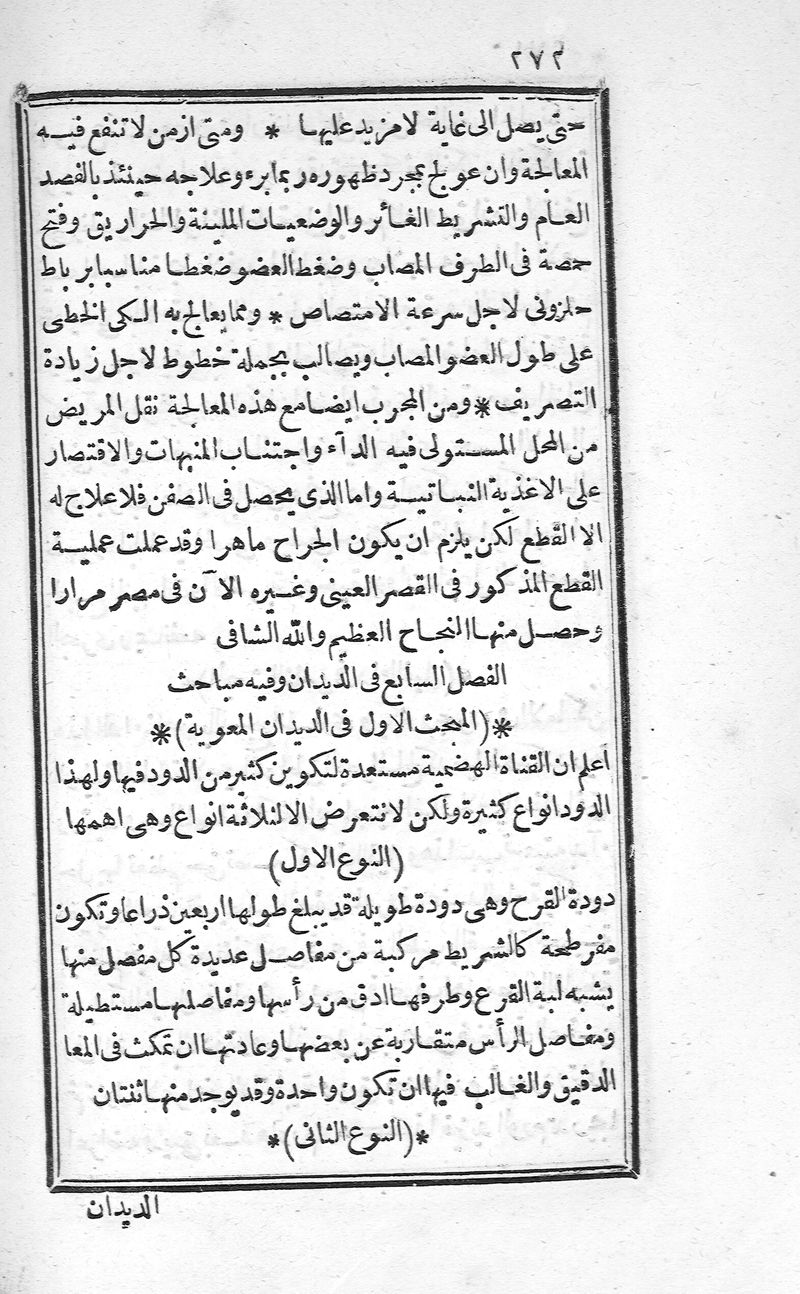 ٢٧٢
حتى يصل الى غاية لا مزيد عليها * ومتى ازمن لا تنفع فيه
المعالجة وان عولج بمجرد ظهوره ربما برء وعلاجه حينئذ بالفصد
العام والتشريط الغائر والوضعيات الملينة والحراريق وفتح
حمصة فى الطرف المصاب وضغط العضو ضغطا مناسبا برباط
حلزونى لاجل سرعة الامتصاص * ومما يعالج به الكى الخطى
على طول العضو المصاب ويصالب بجملة خطوط لاجل زيادة
التصريف * ومن المجرب ايضا مع هذه المعالجة نقل المريض
من المحل المستولى فيه الدآء واجتناب المنبهات والاقتصار
على الاغذية النباتية واما الذى يحصل فى الصفن فلا علاج له
الا القطع لكن يلزم ان يكون الجراح ماهرا وقد عملت عملية
القطع المذكور فى القصر العينى وغيره الآن فى مصر مرارا
وحصل منها النجاح العظيم والله الشافى
الفصل السابع فى الديدان وفيه مباحث
*(المبحث الاول فى الديدان المعوية)*
اعلم ان القناة الهضمية مستعدة لتكوين كثير من الدود فيها ولهذا
الدود انواع كثيرة ولكن لا نتعرض الا لثلاثة انواع وهى اهمها
(النوع الاول)
دودة القرح وهى دودة طويلة قد يبلغ طولها اربعين ذراعا وتكون
مفرطحة كالشريط مركبة من مفاصل عديدة كل مفصل منها
يشبه لبة القرع وطرفها ادق من رأسها ومفاصلها مستطيلة
ومفاصل الرأس متقاربة عن بعضها وعادتها ان تمكث فى المعا
الدقيق والغالب فيها ان تكون واحدة وقد يوجد منها ثنتان
*(النوع الثانى)*
الديدان